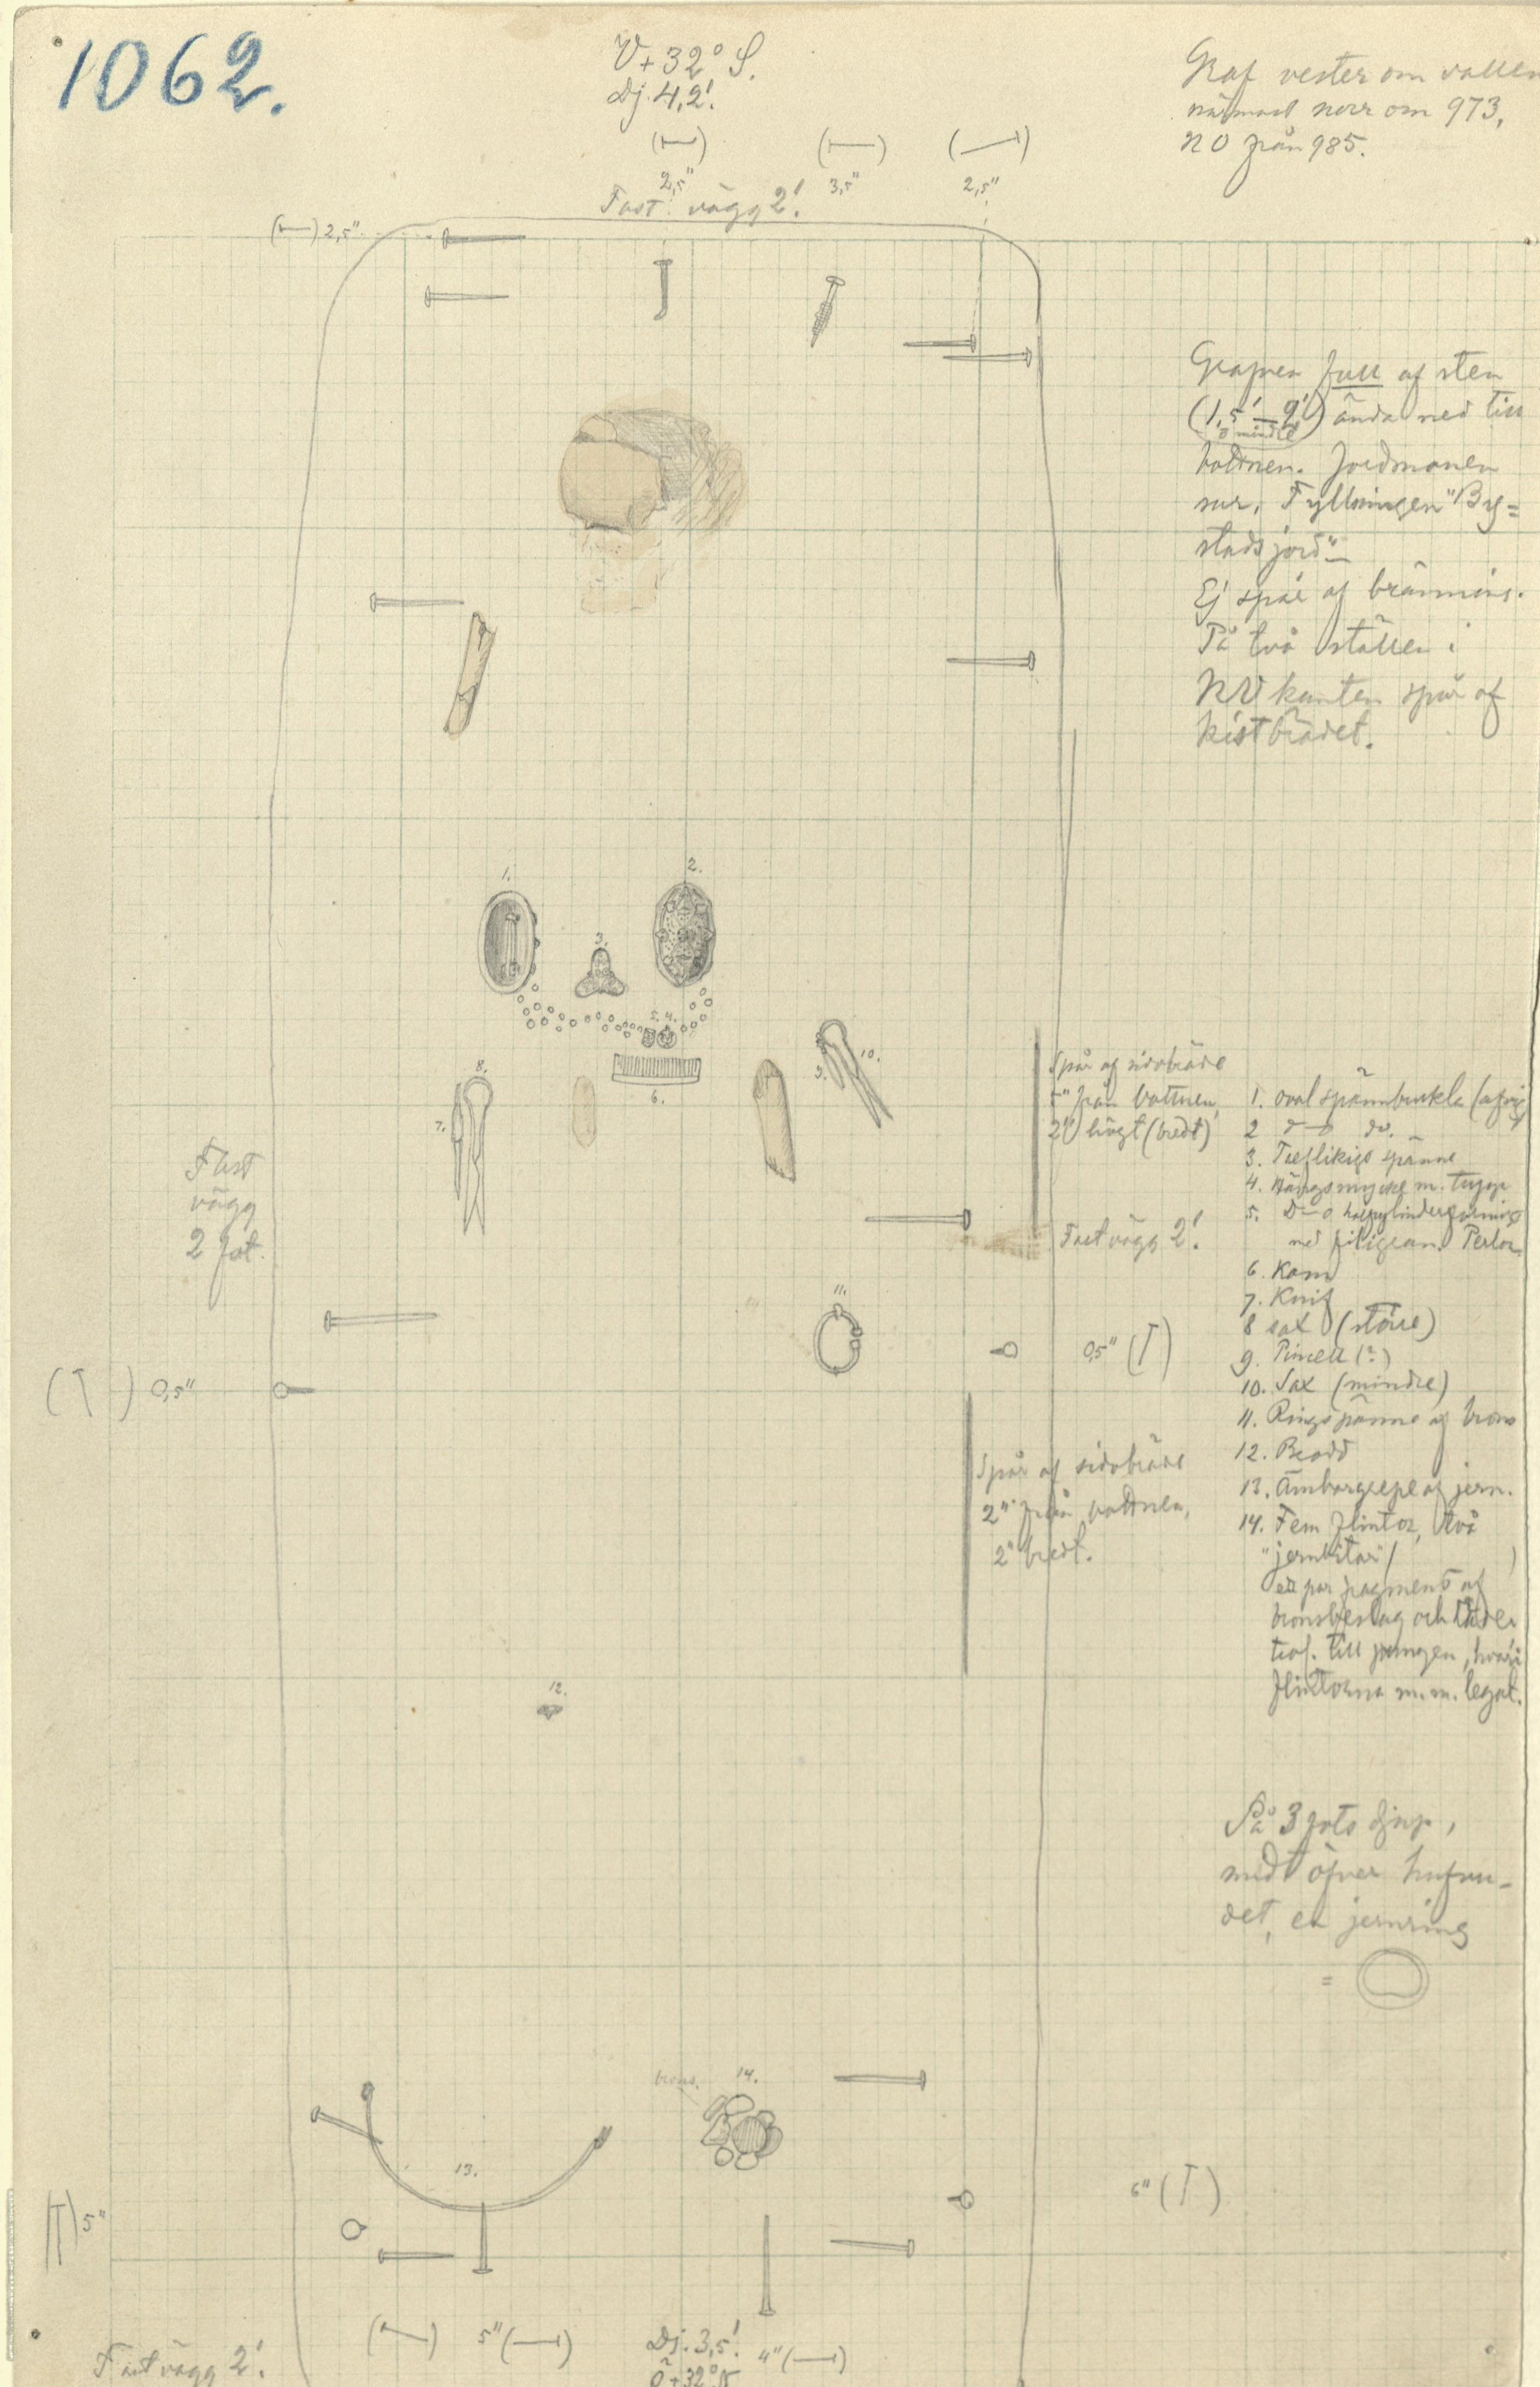 1062.
V+32° S.
Dj. 4,2'.
2,5"
3,5"
2,5"
Fast vägg 2'.
2,5"
Graf vester om vallen
närmast norr om 973,
NO från 985.
Grafven full af sten
(1,5'–2') ända ned till
o mindre
bottnen. Jordmonen
sur. Fyllningen "By=
stadsjord"
Ej spår af bränning.
På två ställen i
NV kanten spår af
kistbrädet.
1.
2.
3.
5. 4.
6.
7.
8.
9.
10.
Spår af sidobräde
5" från bottnen,
2" högt (bredt)
Fast vägg 2'.
Fast
vägg
2 fot.
11.
0,5"
0,5"
1. Oval spännbuckla
2 D–o do.
3. Treflikigt spänne
4. Hängsmycke m. tupp
5. D–o halfcylinderformig
med filigran. Perlor.
6. Kam
7. Knif
8 Sax (större)
9. Pincett (?)
10. Sax (mindre)
11. Ringspänne af brons
12. Brodd
13. Ämbargrepe af jern.
14. Fem flintor, två
"jernbitar" (            )
ett par fragment af
bronsbeslag och läder
till pungen, hvari
flintorna m.m. legat.
Spår af sidobräde
2" från bottnen,
2" bredt.
12.
På 3 fots djup,
midt öfver hufvu-
det, en jernring
=
brons.
14.
13.
6"
5"
5"
Dj. 3,5'.
4"
Ö+32°N
Fast vägg 2'.